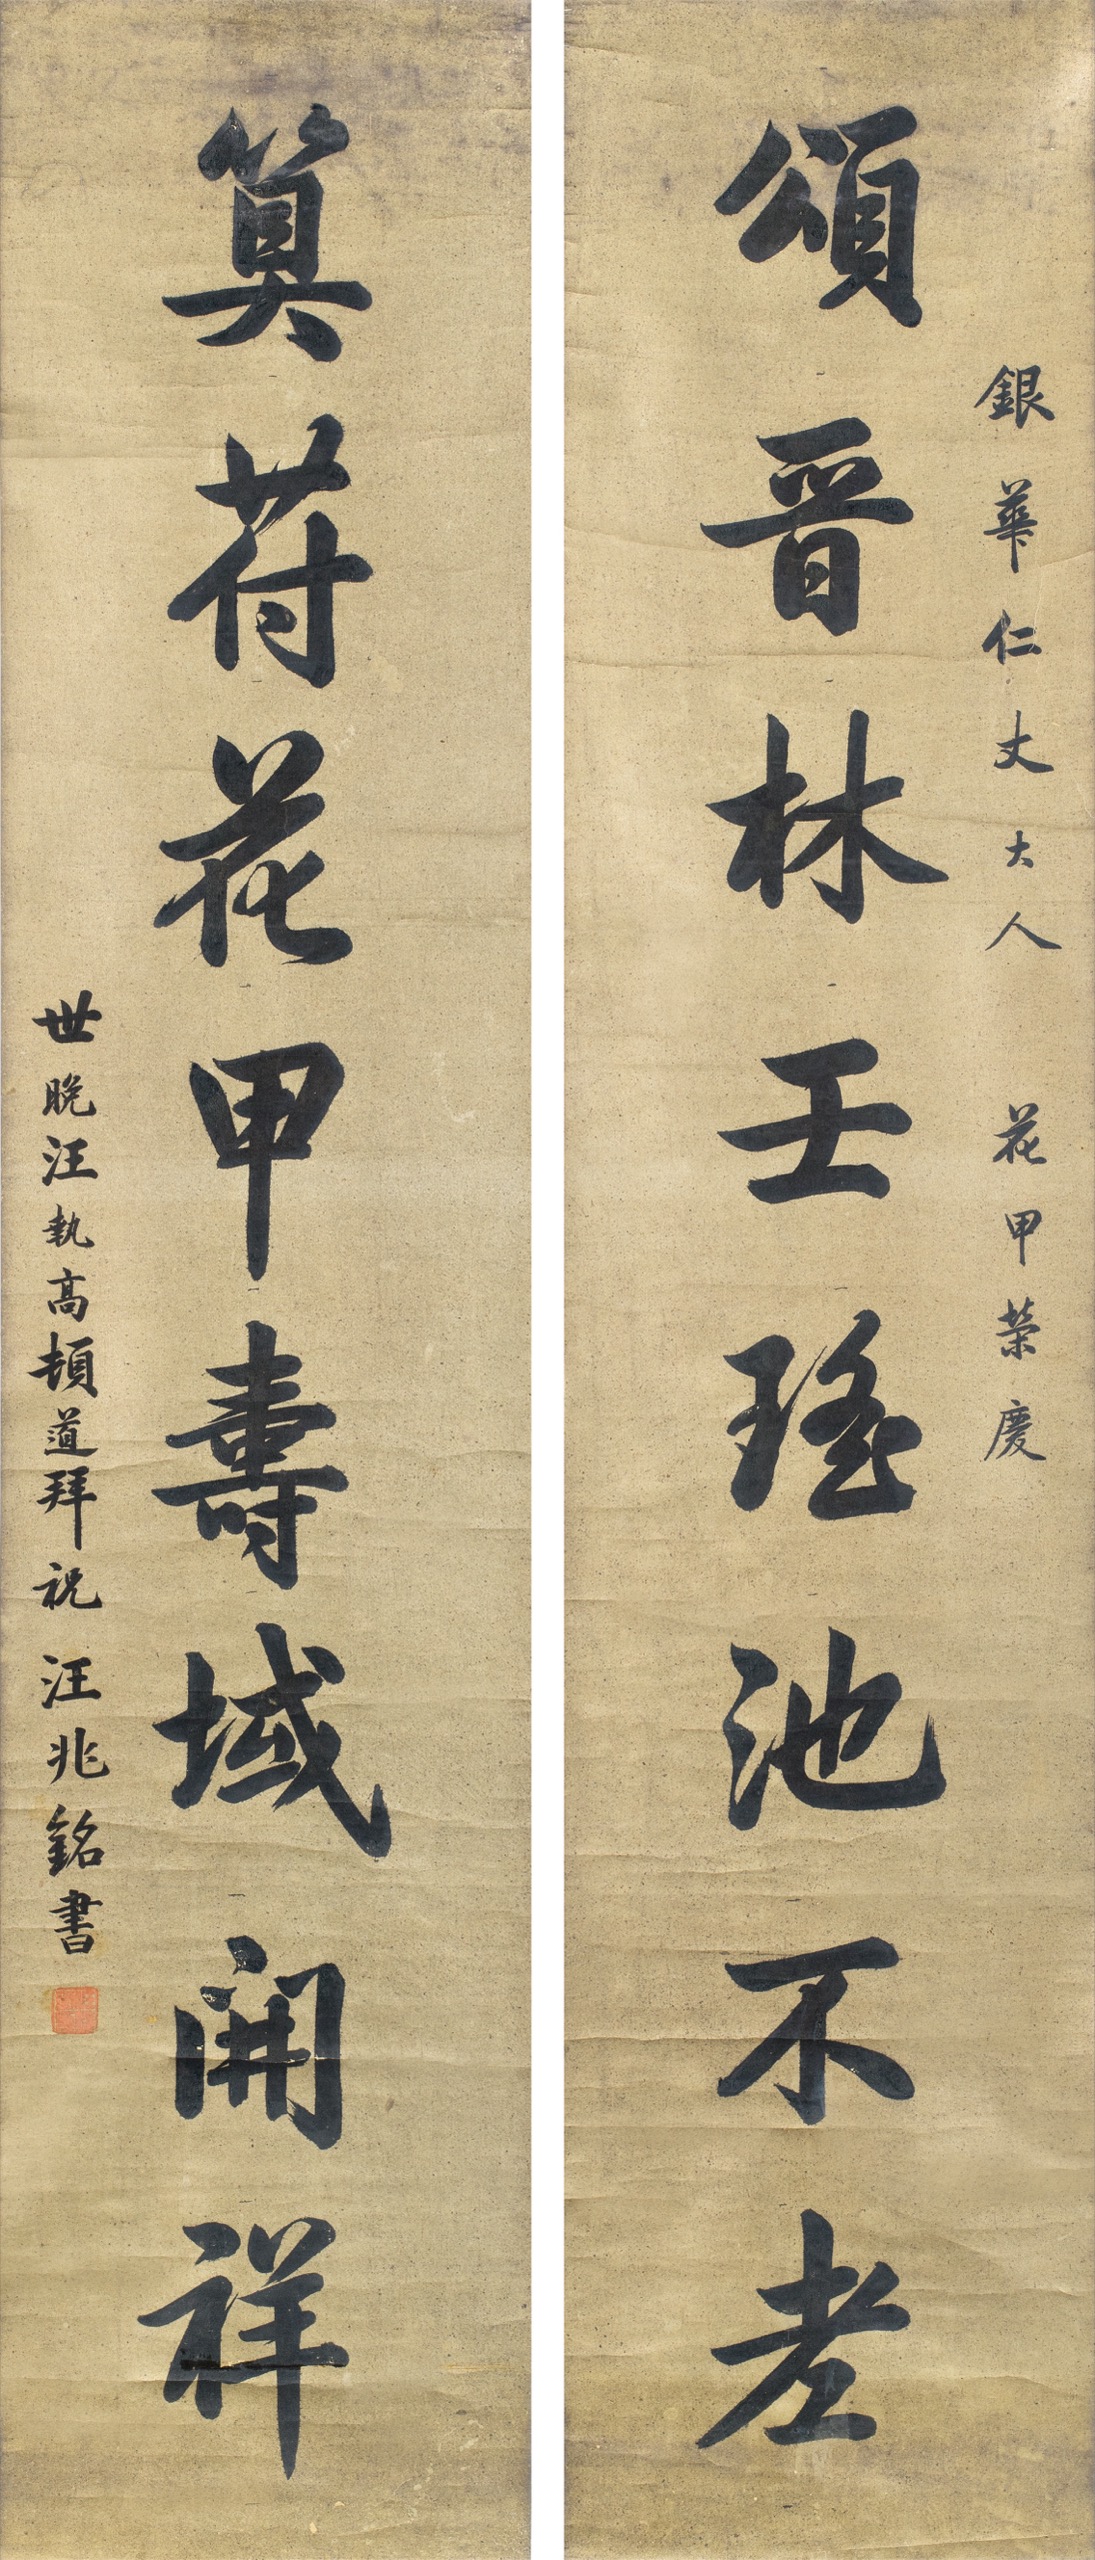 銀華仁丈大人 花甲榮慶
頌晉林壬瑤池不老
算符花甲壽域開祥
世晚汪執高頓道拜祝 汪兆銘書